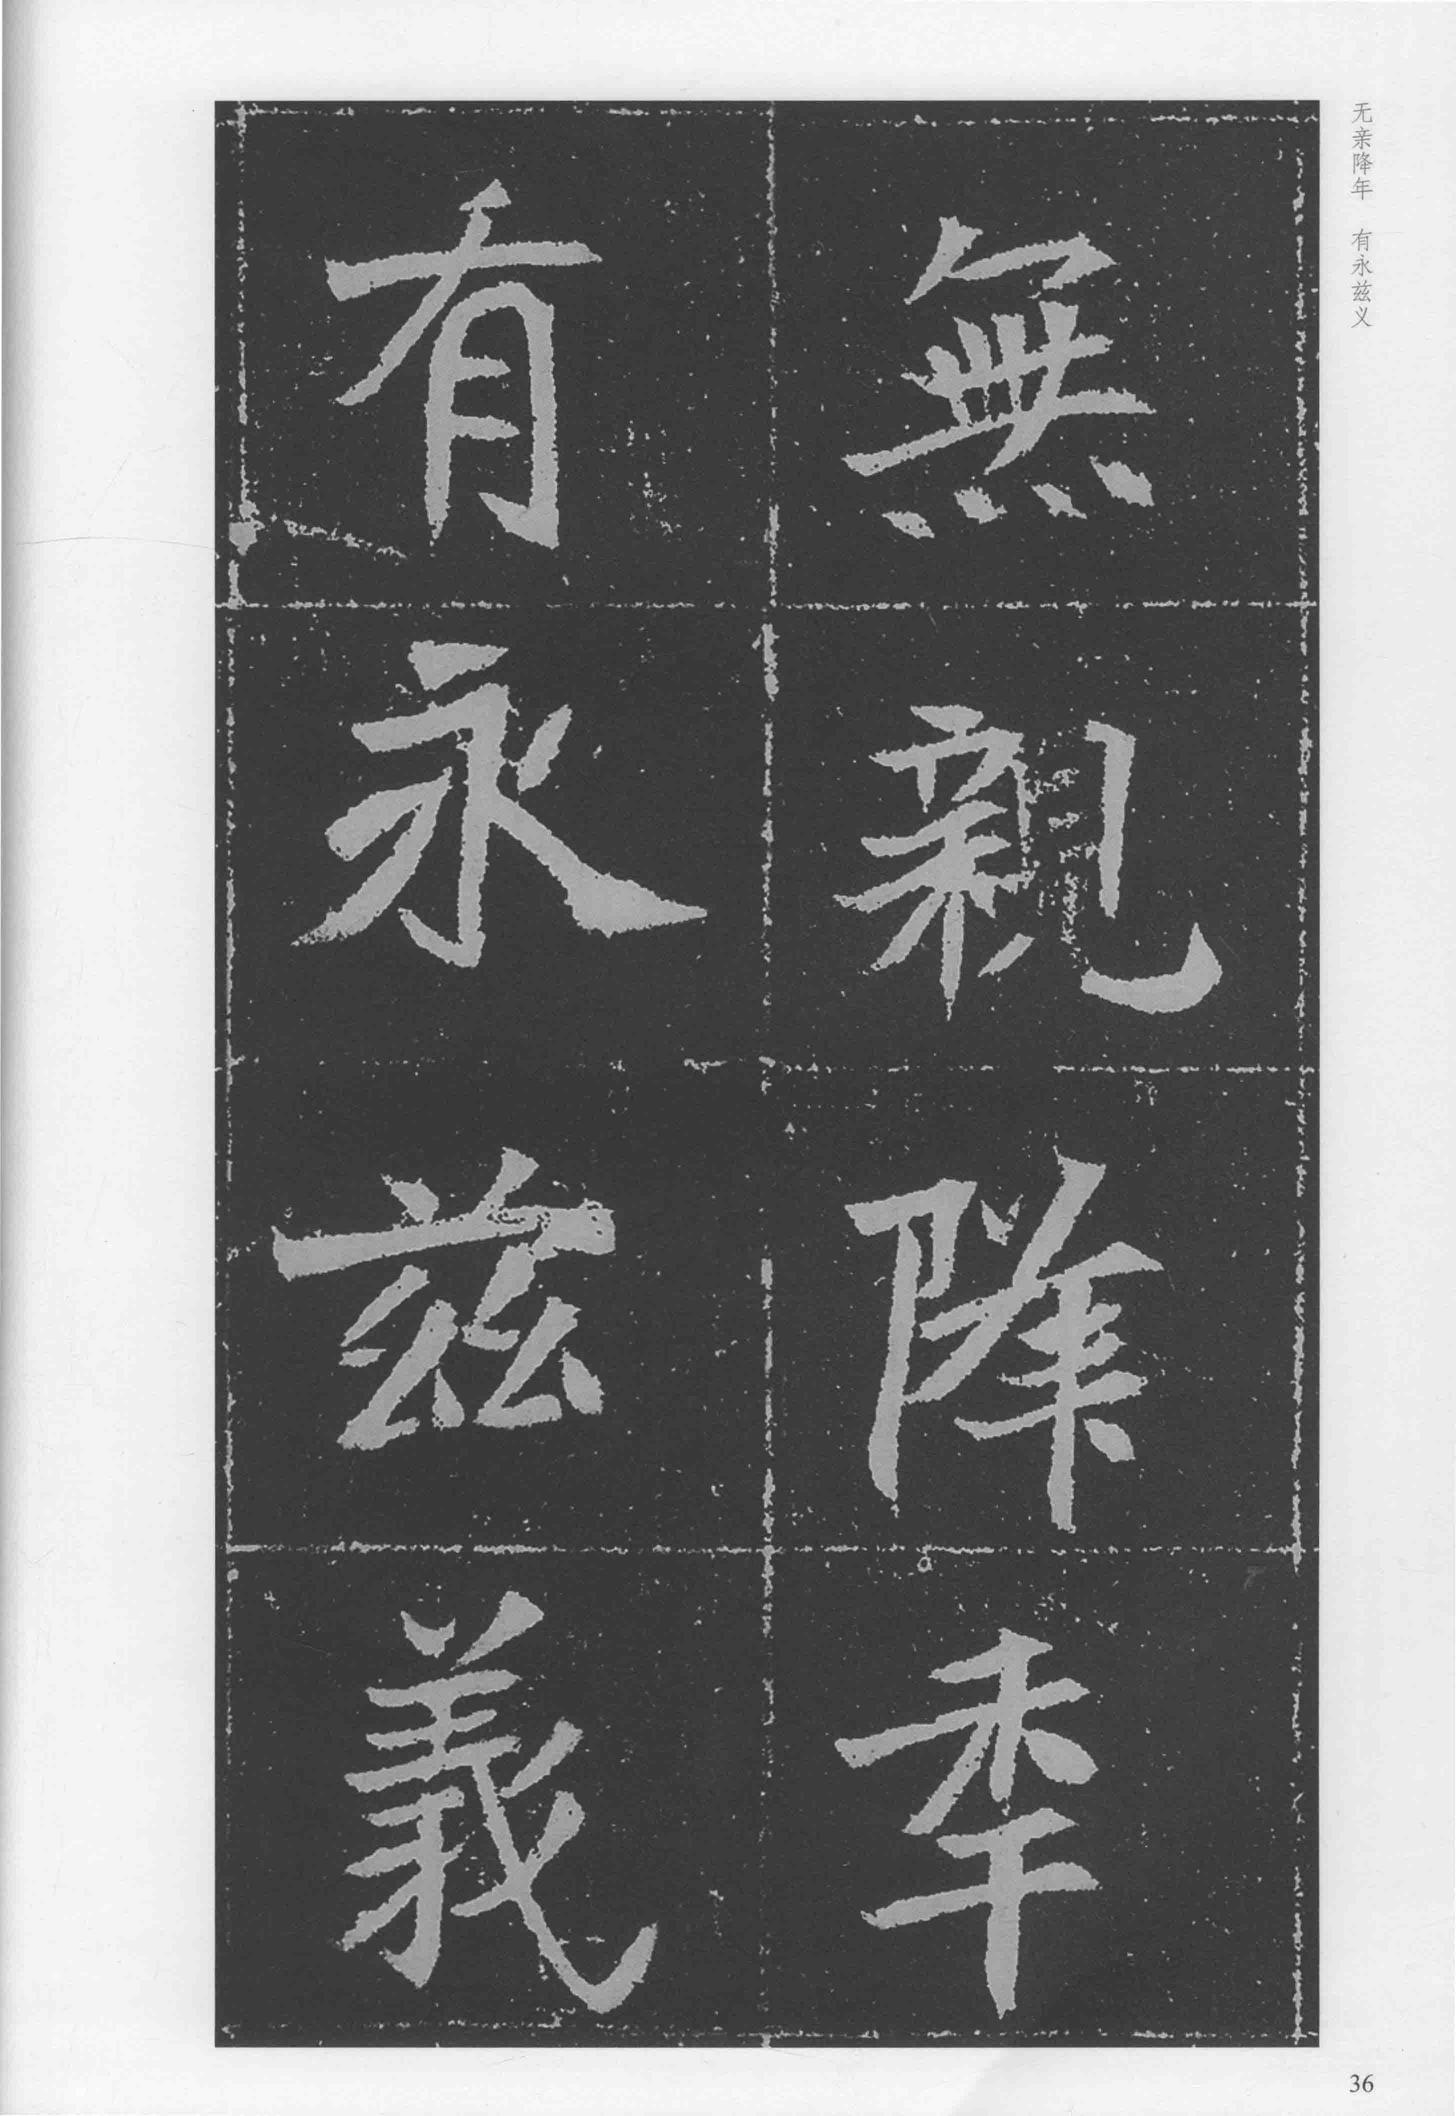 无亲降年　有永兹义
無親降秊
有永兹義
36